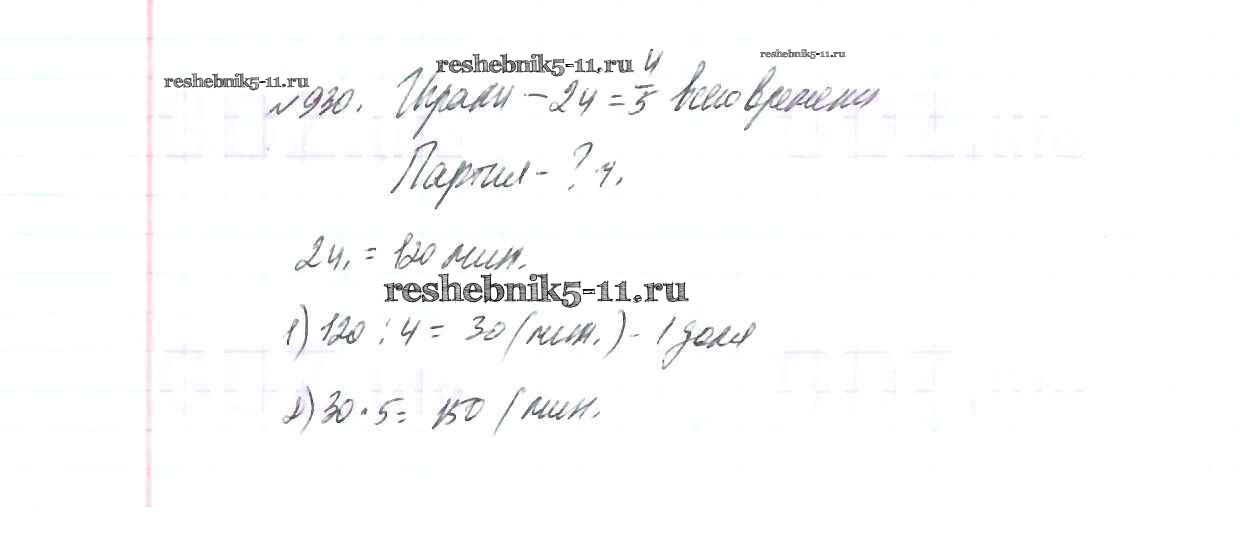 reshebnik5-11.ru
reshebnik5-11.ru
reshebnik5-11.ru
№930. Играли - 2ч = 4/5 всего времени
Партия - ? ч.
2ч. = 120 мин.
reshebnik5-11.ru
1) 120 : 4 = 30 (мин.) - 1 доля
2) 30 · 5 = 150 (мин.